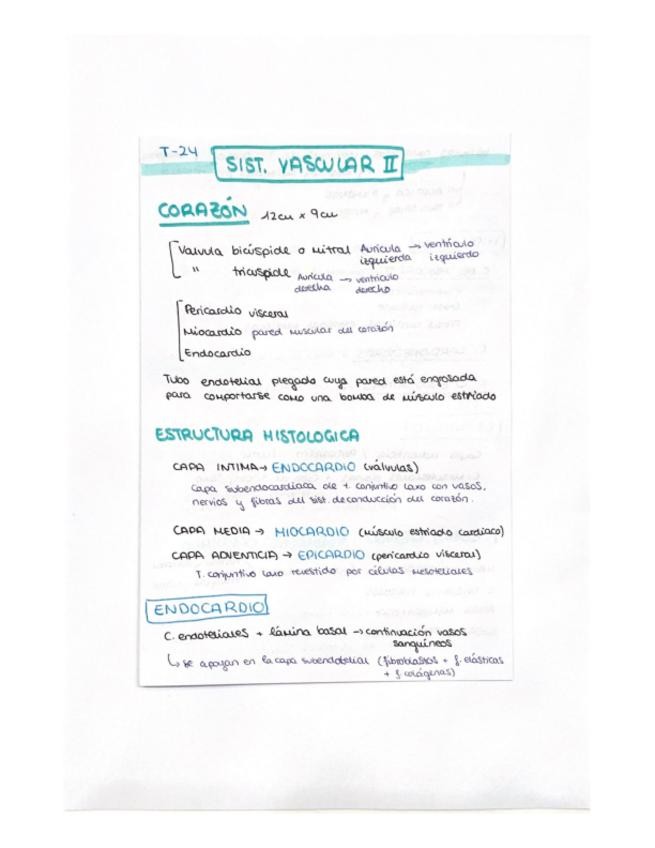 T-24
SIST. VASCULAR II
CORAZÓN 12cm x 9cm
Valvula bicúspide o mitral Aurícula → ventrículo
izquierda izquierdo
" tricuspide Aurícula → ventriculo
derecha derecho
Pericardio visceral
Miocardio pared muscular del corazón
Endocardio
Tubo endotelial plegado cuya pared está engrosada
para comportarse como una bomba de músculo estriado
ESTRUCTURA HISTOLOGICA
CAPA INTIMA → ENDOCARDIO (válvulas)
Capa subendocardiaca de t. conjuntivo laxo con vasos,
nervios y fibras del sist. de conducción del corazón.
CAPA MEDIA → MIOCARDIO (músculo estriado cardiaco)
CAPA ADVENTICIA → EPICARDIO (pericardio visceral)
T. conjuntivo laxo revestido por células mesoteliales
ENDOCARDIO
C. endoteliales + lámina basal → continuación vasos
sanguíneos
↳ se apoyan en la capa subendotelial (fibroblastos + f. elásticas
+ f. colágenas)